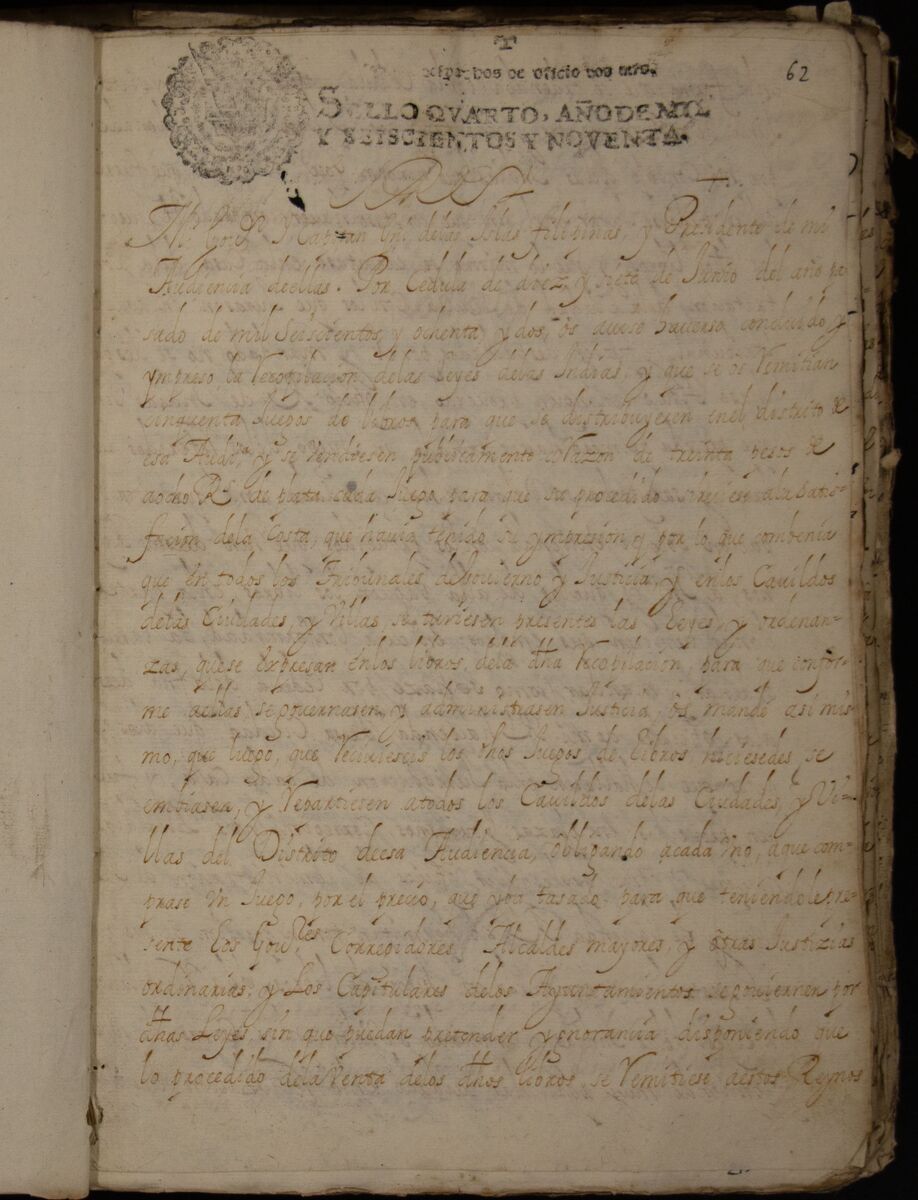 62
para despachos de oficio dos mrs.
SELLO QVARTO, AÑO DE MIL
Y SEISCIENTOS Y NOVENTA.
Mi Gou.or y Capitan Gñl. delas Islas filipinas, y Presidente de mi
Audiencia deellas. Por Cedula de diez y siete de Junio del año pa
sado de mill Seiscientos y ochenta y dos, os auiso hauerse concluido, y
ympreso la Recopilacion delas Leyes delas Indias, y que se os Remitian
cinquenta Juegos de libros para que se distribuyesen enel distrito de
esa Audi.a y se vendiesen publicamente a Razon de treinta pesos de
aocho R.s de plata cada Juego, para que su procedido siruiese ala satis-
facion dela Costa, que hauia tenido su ympresion, y por lo que combenia
que en todos los Tribunales de Gouierno y Justicia, y enlos Cauildos
delas Ciudades, y Villas se tuuiesen presentes las Leyes, y ordenan-
zas, quese Expresan enlos libros dela dha Recopilacion, para que confor-
me aellas segouernasen, y administrasen Justicia, os mandé asi mis-
mo, que luego, que Reciuieseis los dhos Juegos de libros hiciesedes se
embiasen, y Repartiesen atodos los Cauildos delas Ciudades, y Vi-
llas del Distrito deesa Audiencia, obligando acada Vno, aque com
prase Vn Juego, por el precio, que yba tasado para que teniendole pre-
sente Los Gou.res Corregidores, Alcaldes mayores, y otras Justizias
ordinarias, y Los Capitulares delos Ayuntamientos segouiernen por
dhas Leyes, sin que puedan pretender ygnorancia, disponiendo que
lo procedido dela Venta delos dhos libros, se Remitiese aestos Reynos